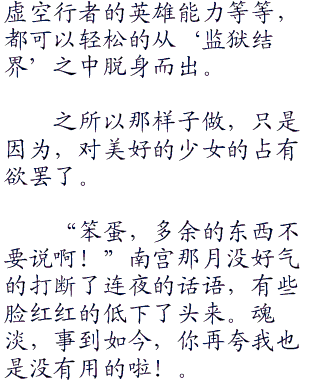 虚空行者的英雄能力等等，
都可以轻松的从‘监狱结
界’之中脱身而出。
之所以那样子做，只是
因为，对美好的少女的占有
欲罢了。
“笨蛋，多余的东西不
要说啊！”南宫那月没好气
的打断了连夜的话语，有些
脸红红的低下了头来。魂
淡，事到如今，你再夸我也
是没有用的啦！。